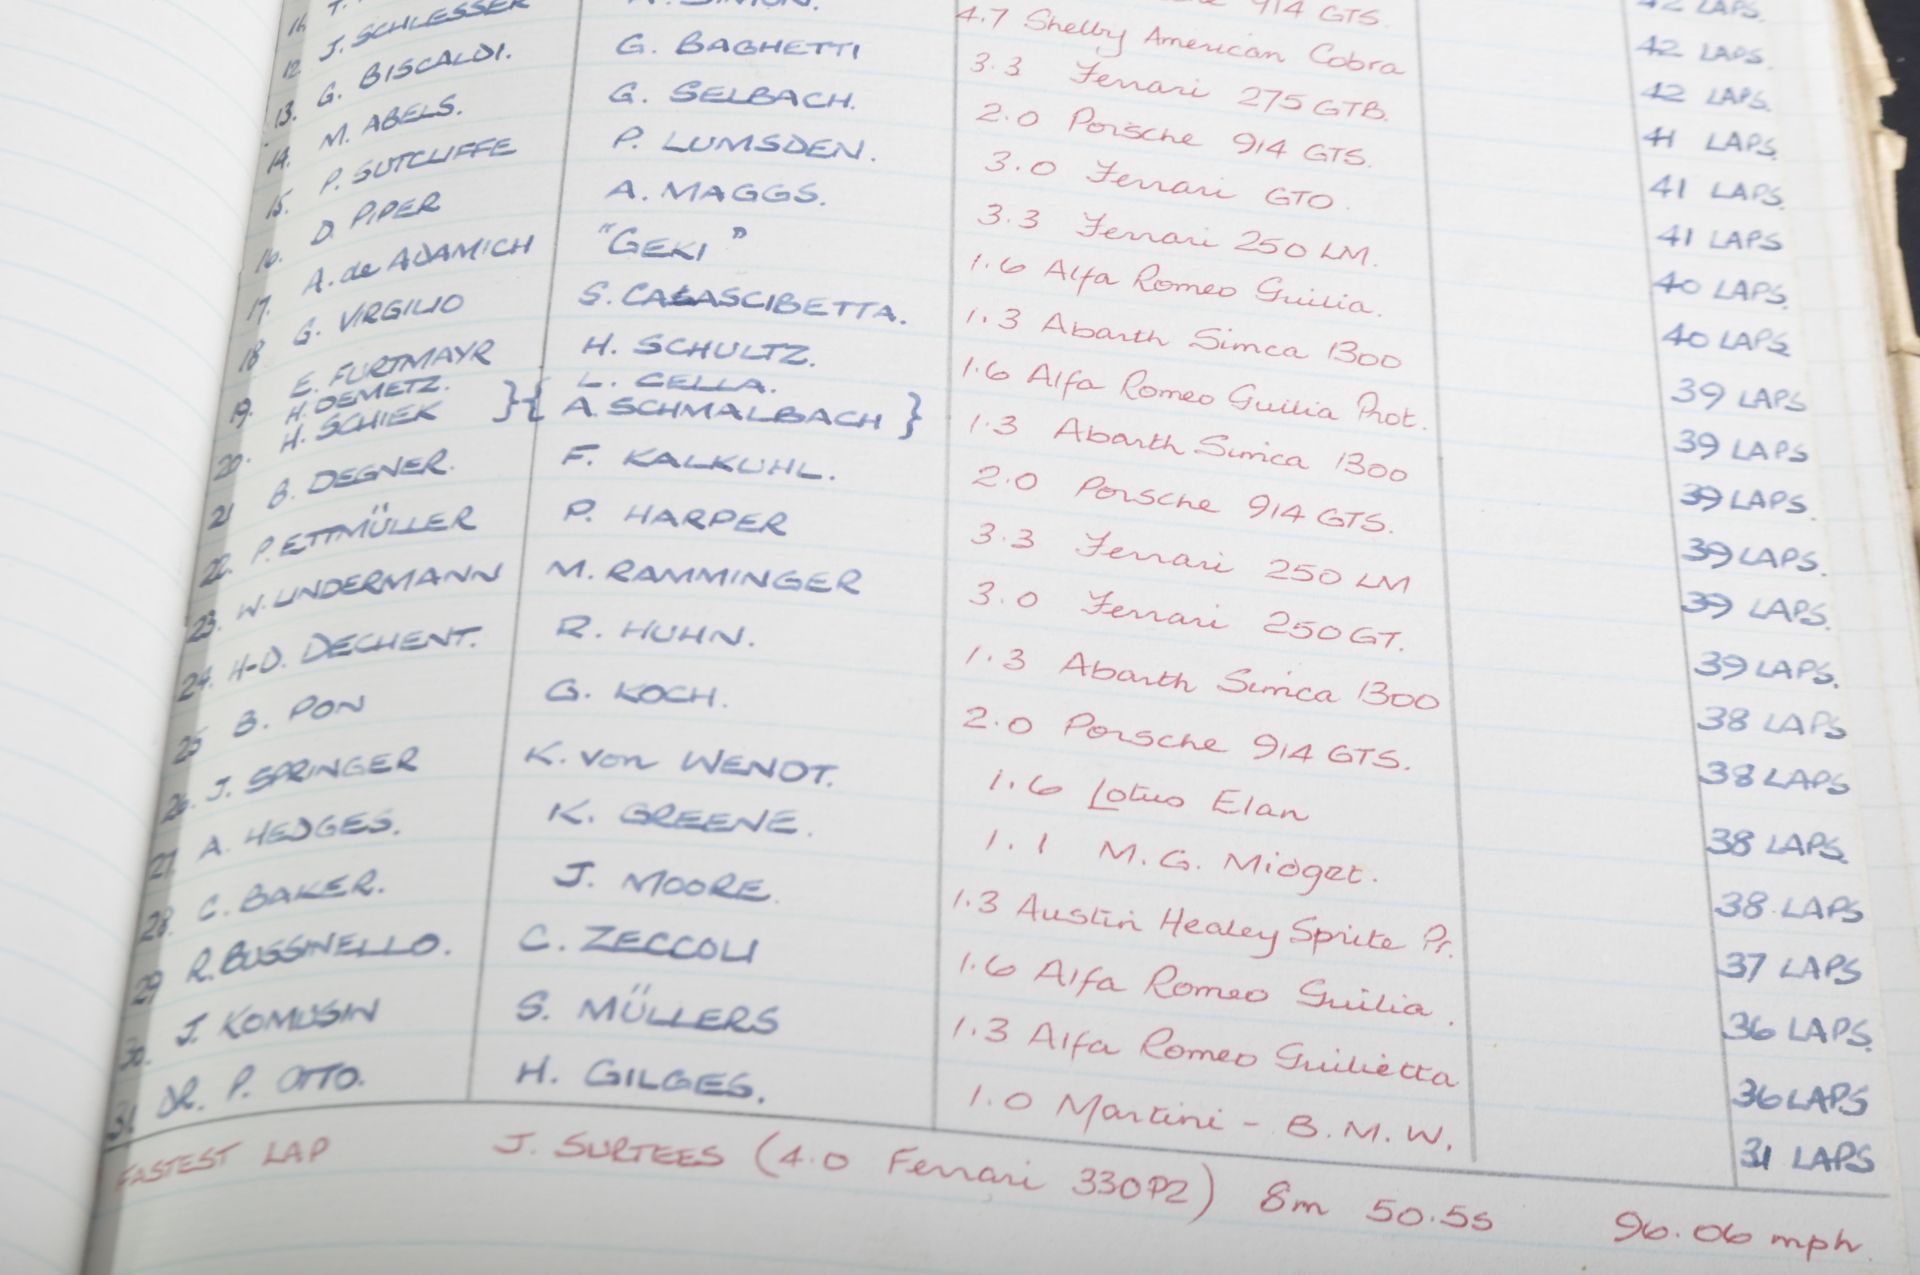 914 GTS. 42 LAPS.
12. J. SCHLESSER A. SIMON. 4.7 Shelby American Cobra 42 LAPS.
13. G. BISCALDI. G. BAGHETTI 3.3 Ferrari 275 GTB. 42 LAPS.
14. M. ABELS. G. SELBACH. 2.0 Porsche 914 GTS. 41 LAPS.
15. P. SUTCLIFFE P. LUMSDEN. 3.0 Ferrari GTO. 41 LAPS.
16. D. PIPER A. MAGGS. 3.3 Ferrari 250 LM. 41 LAPS
17. A. de ADAMICH "GEKI" 1.6 Alfa Romeo Guilia. 40 LAPS.
18 G. VIRGILIO S. CALASCIBETTA. 1.3 Abarth Simca 1300 40 LAPS
19. E. FURTMAYR H. SCHULTZ. 1.6 Alfa Romeo Guilia Prot. 39 LAPS
H. DEMETZ. L. CELLA.
20. H. SCHIEK }{ A. SCHMALBACH } 1.3 Abarth Simca 1300 39 LAPS
21 B. DEGNER. F. KALKUHL. 2.0 Porsche 914 GTS. 39 LAPS.
22. P. ETTMÜLLER P. HARPER 3.3 Ferrari 250 LM 39 LAPS.
23. W. LINDERMANN M. RAMMINGER 3.0 Ferrari 250 GT. 39 LAPS.
24. H-D. DECHENT. R. HUHN. 1.3 Abarth Simca 1300 39 LAPS.
25 B. PON G. KOCH. 2.0 Porsche 914 GTS. 38 LAPS
26. J. SPRINGER K. von WENDT. 1.6 Lotus Elan 38 LAPS
27 A. HEDGES. K. GREENE. 1.1 M.G. Midget. 38 LAPS.
28. C. BAKER. J. MOORE. 1.3 Austin Healey Sprite Pr. 38 LAPS
29 R. BUSSINELLO. C. ZECCOLI 1.6 Alfa Romeo Guilia. 37 LAPS
30. J. KOMUSIN S. MÜLLERS 1.3 Alfa Romeo Guilietta 36 LAPS.
31 DR. P. OTTO. H. GILGES. 1.0 Martini - B.M.W. 36 LAPS
31 LAPS
FASTEST LAP J. SURTEES (4.0 Ferrari 330P2) 8m 50.5s 96.06 mph.